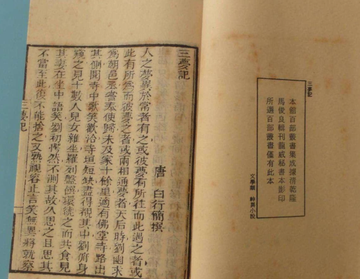 三夢記
本館百部叢書集成據清乾隆
馬俊良輯刊龍威秘書本影印
所選百部叢書僅有此本
三夢記
唐 白行簡撰
人之夢異於常者有之或彼夢有所往而此遇之者或
此有所為而彼夢之者或兩相通夢者天后時劉幽求
為朝邑丞嘗奉使夜歸未及家十餘里適有佛堂寺路出
其側聞寺中歌笑歡洽寺垣短缺盡得覩其中劉俯身
窺之見十數人兒女雜坐羅列盤饌環繞之而共食見
其妻在坐中語笑劉初愕然不測其故久之且思其
不當至此復不能捨之又熟視容止言笑無異將就察
三夢記